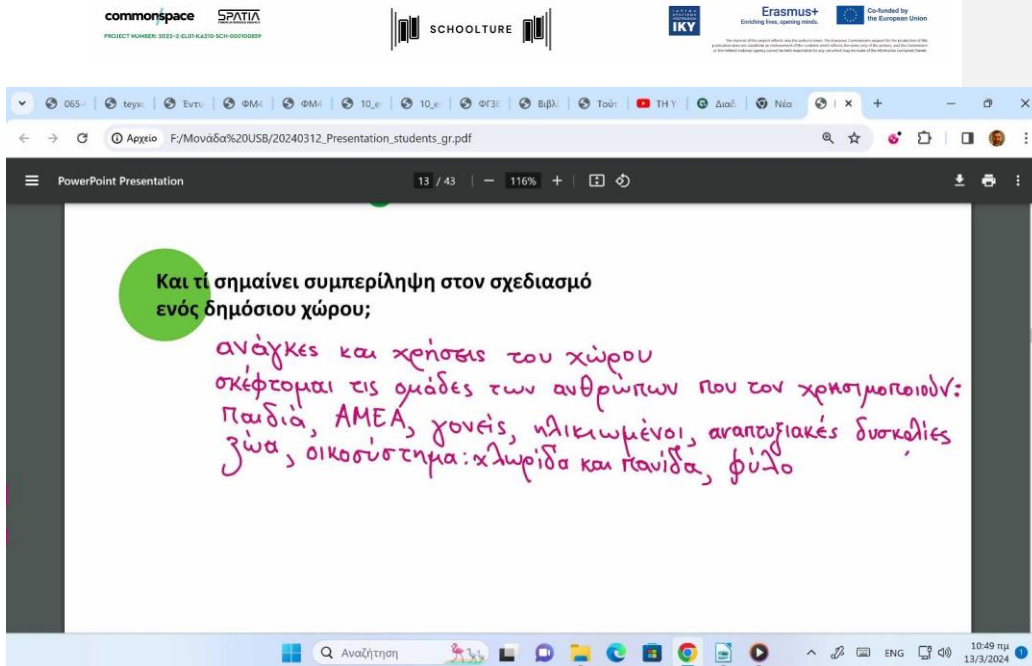 commonspace
SPATIA
PROJECT NUMBER: 2022-2-EL01-KA210-SCH-000100859
SCHOOLTURE
IKY
Erasmus+
Enriching lives, opening minds.
Co-funded by
the European Union
065-
teyxo
Έντυ
ΦΜ4
ΦΜ4
10_e
10_e
ΦΓ3
Βιβλ
Τούτ
TH Y
Διαδ
Νέα
Αρχείο F:/Μονάδα%20USB/20240312_Presentation_students_gr.pdf
PowerPoint Presentation
13 / 43
116%
Και τί σημαίνει συμπερίληψη στον σχεδιασμό
ενός δημόσιου χώρου;
ανάγκες και χρήσεις του χώρου
σκέφτομαι τις ομάδες των ανθρώπων που τον χρησιμοποιούν:
παιδιά, ΑΜΕΑ, γονείς, ηλικιωμένοι, αναπτυξιακές δυσκολίες,
ζώα, οικοσύστημα: χλωρίδα και πανίδα, φύλο
Αναζήτηση
ENG
10:49 πμ
13/3/2024